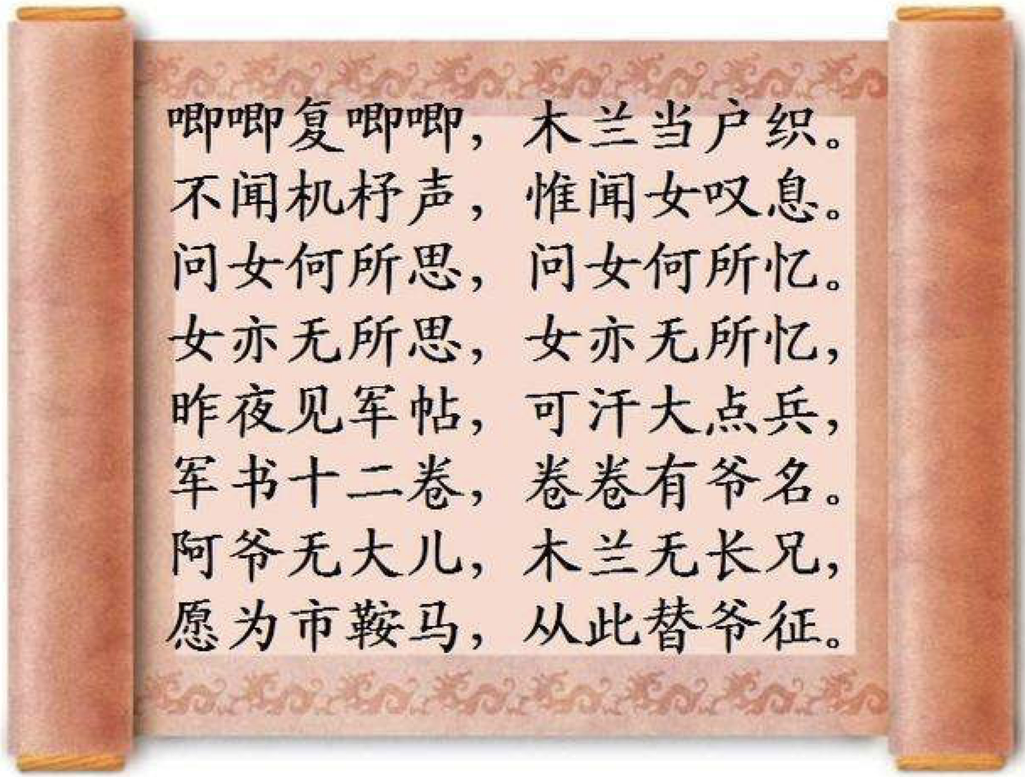 唧唧复唧唧，木兰当户织。
不闻机杼声，惟闻女叹息。
问女何所思，问女何所忆。
女亦无所思，女亦无所忆，
昨夜见军帖，可汗大点兵，
军书十二卷，卷卷有爷名。
阿爷无大儿，木兰无长兄，
愿为市鞍马，从此替爷征。